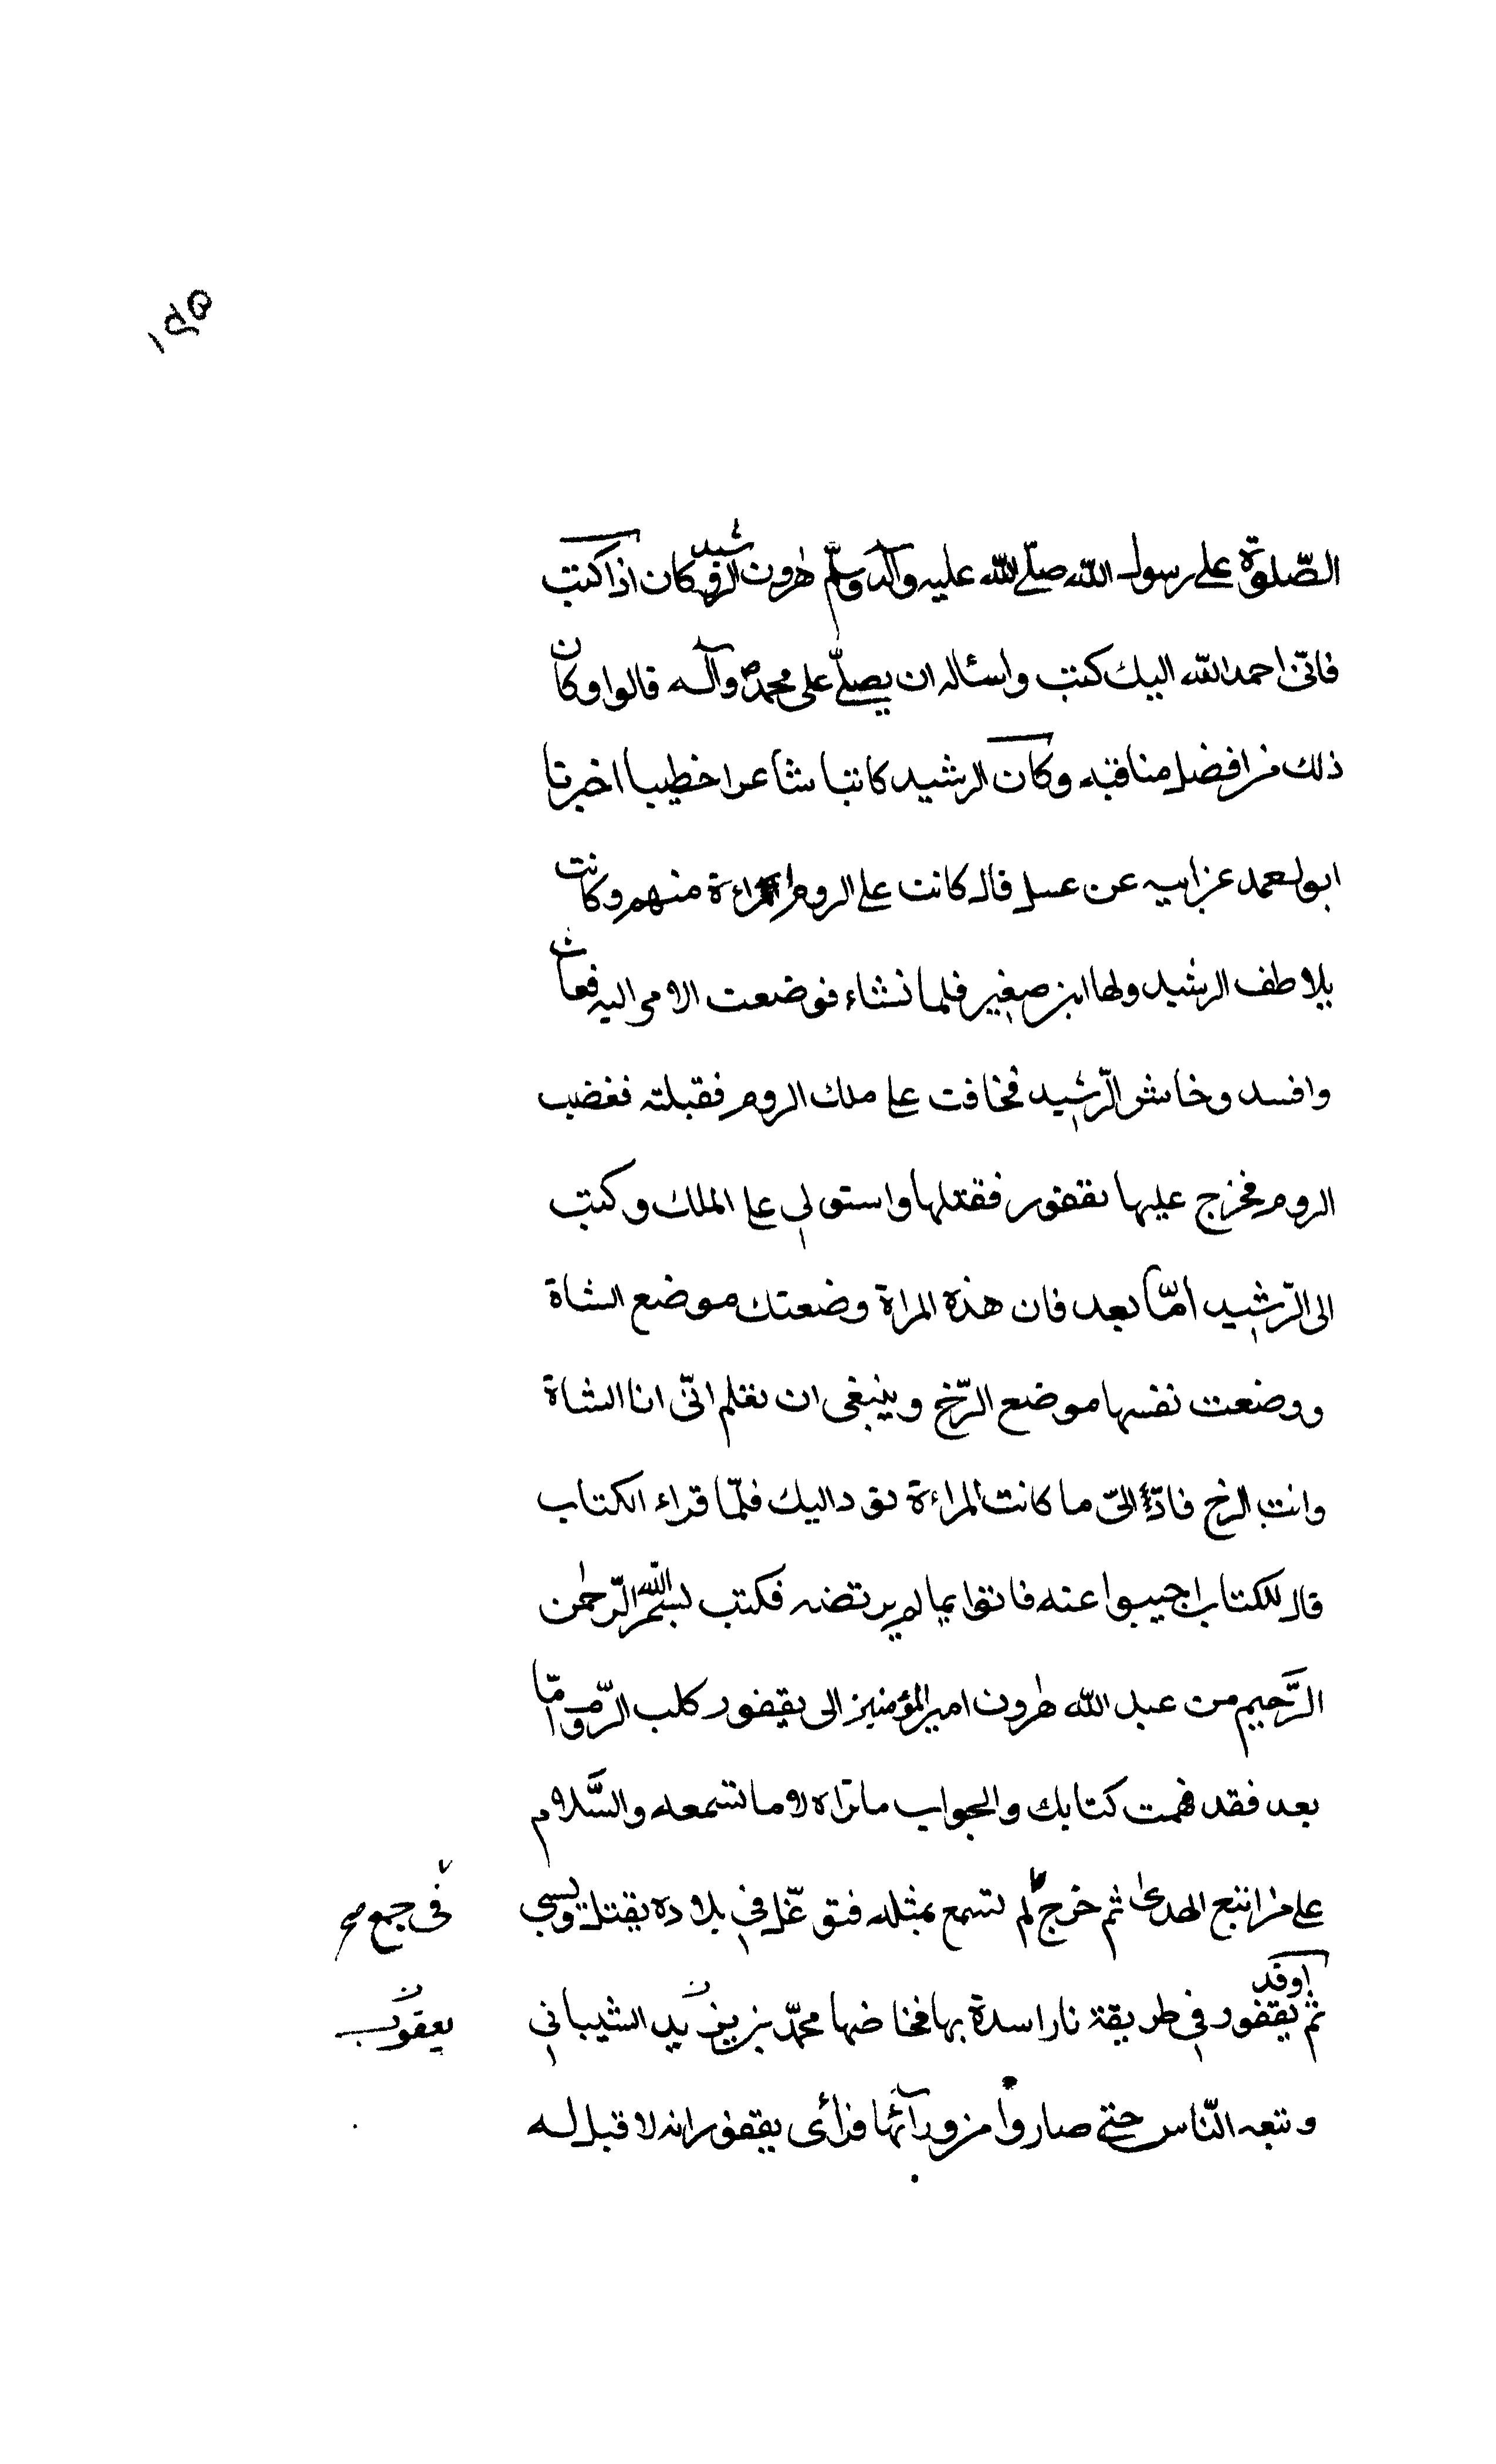 ١٩٥
الصّلوة على رسول الله صلّى الله عليه وآله وسلّم هرون الرشيد فكان اذا كتب
فانّى احمد الله اليك كتب واسئاله ان يصلّى على محمد ص وآله قالوا وكان
ذلك من افضل مناقبه وكان الرشيد كاتبا شاعرا خطيبا اخبرنا
ابو احمد عن ابيه عن عسل قال كانت على الروم امراءة منهم وكانت
يلاطف الرشيد ولها ابن صغير فلما نشاء فوضعت الامر اليه فعاث
وافسد وخاشن الرّشيد فخافت على ملك الروم فقبلته فغضب
الروم فخرج عليها نقفور فقتلها واستولى على الملك وكتب
الى الرّشيد امّا بعد فان هذه المراة وضعتك موضع الشاة
ووضعت نفسها موضع الرّخ وينبغى ان تعلم انّى انا الشاة
وانت الرخ فادّ الىّ ما كانت المراءة تود اليك فلمّا قراء الكتاب
قال للكتاب اجيبوا عنه فاتوا بما لم يرتضه فكتب بسم الله الرّحمن
الرّحيم من عبد الله هرون امير المؤمنين الى يقفور كلب الرّوم امّا
بعد فقد فهمت كتابك والجواب ما تراه لا ما تسمعه والسّلام
على من اتبع الهدى ثم خرج لم تسمع بمثله فتوغّل فى بلاده يقتل ويسبي
فى جمع صح
ثم اوقد يقفور فى طريقة نارا سدة بها فخاضها محمّد بن يزيد الشيبانى
يعقوب ن
وتبعه النّاس حتى صاروا من ورآئها فرأى يقفور انه لا قبل له